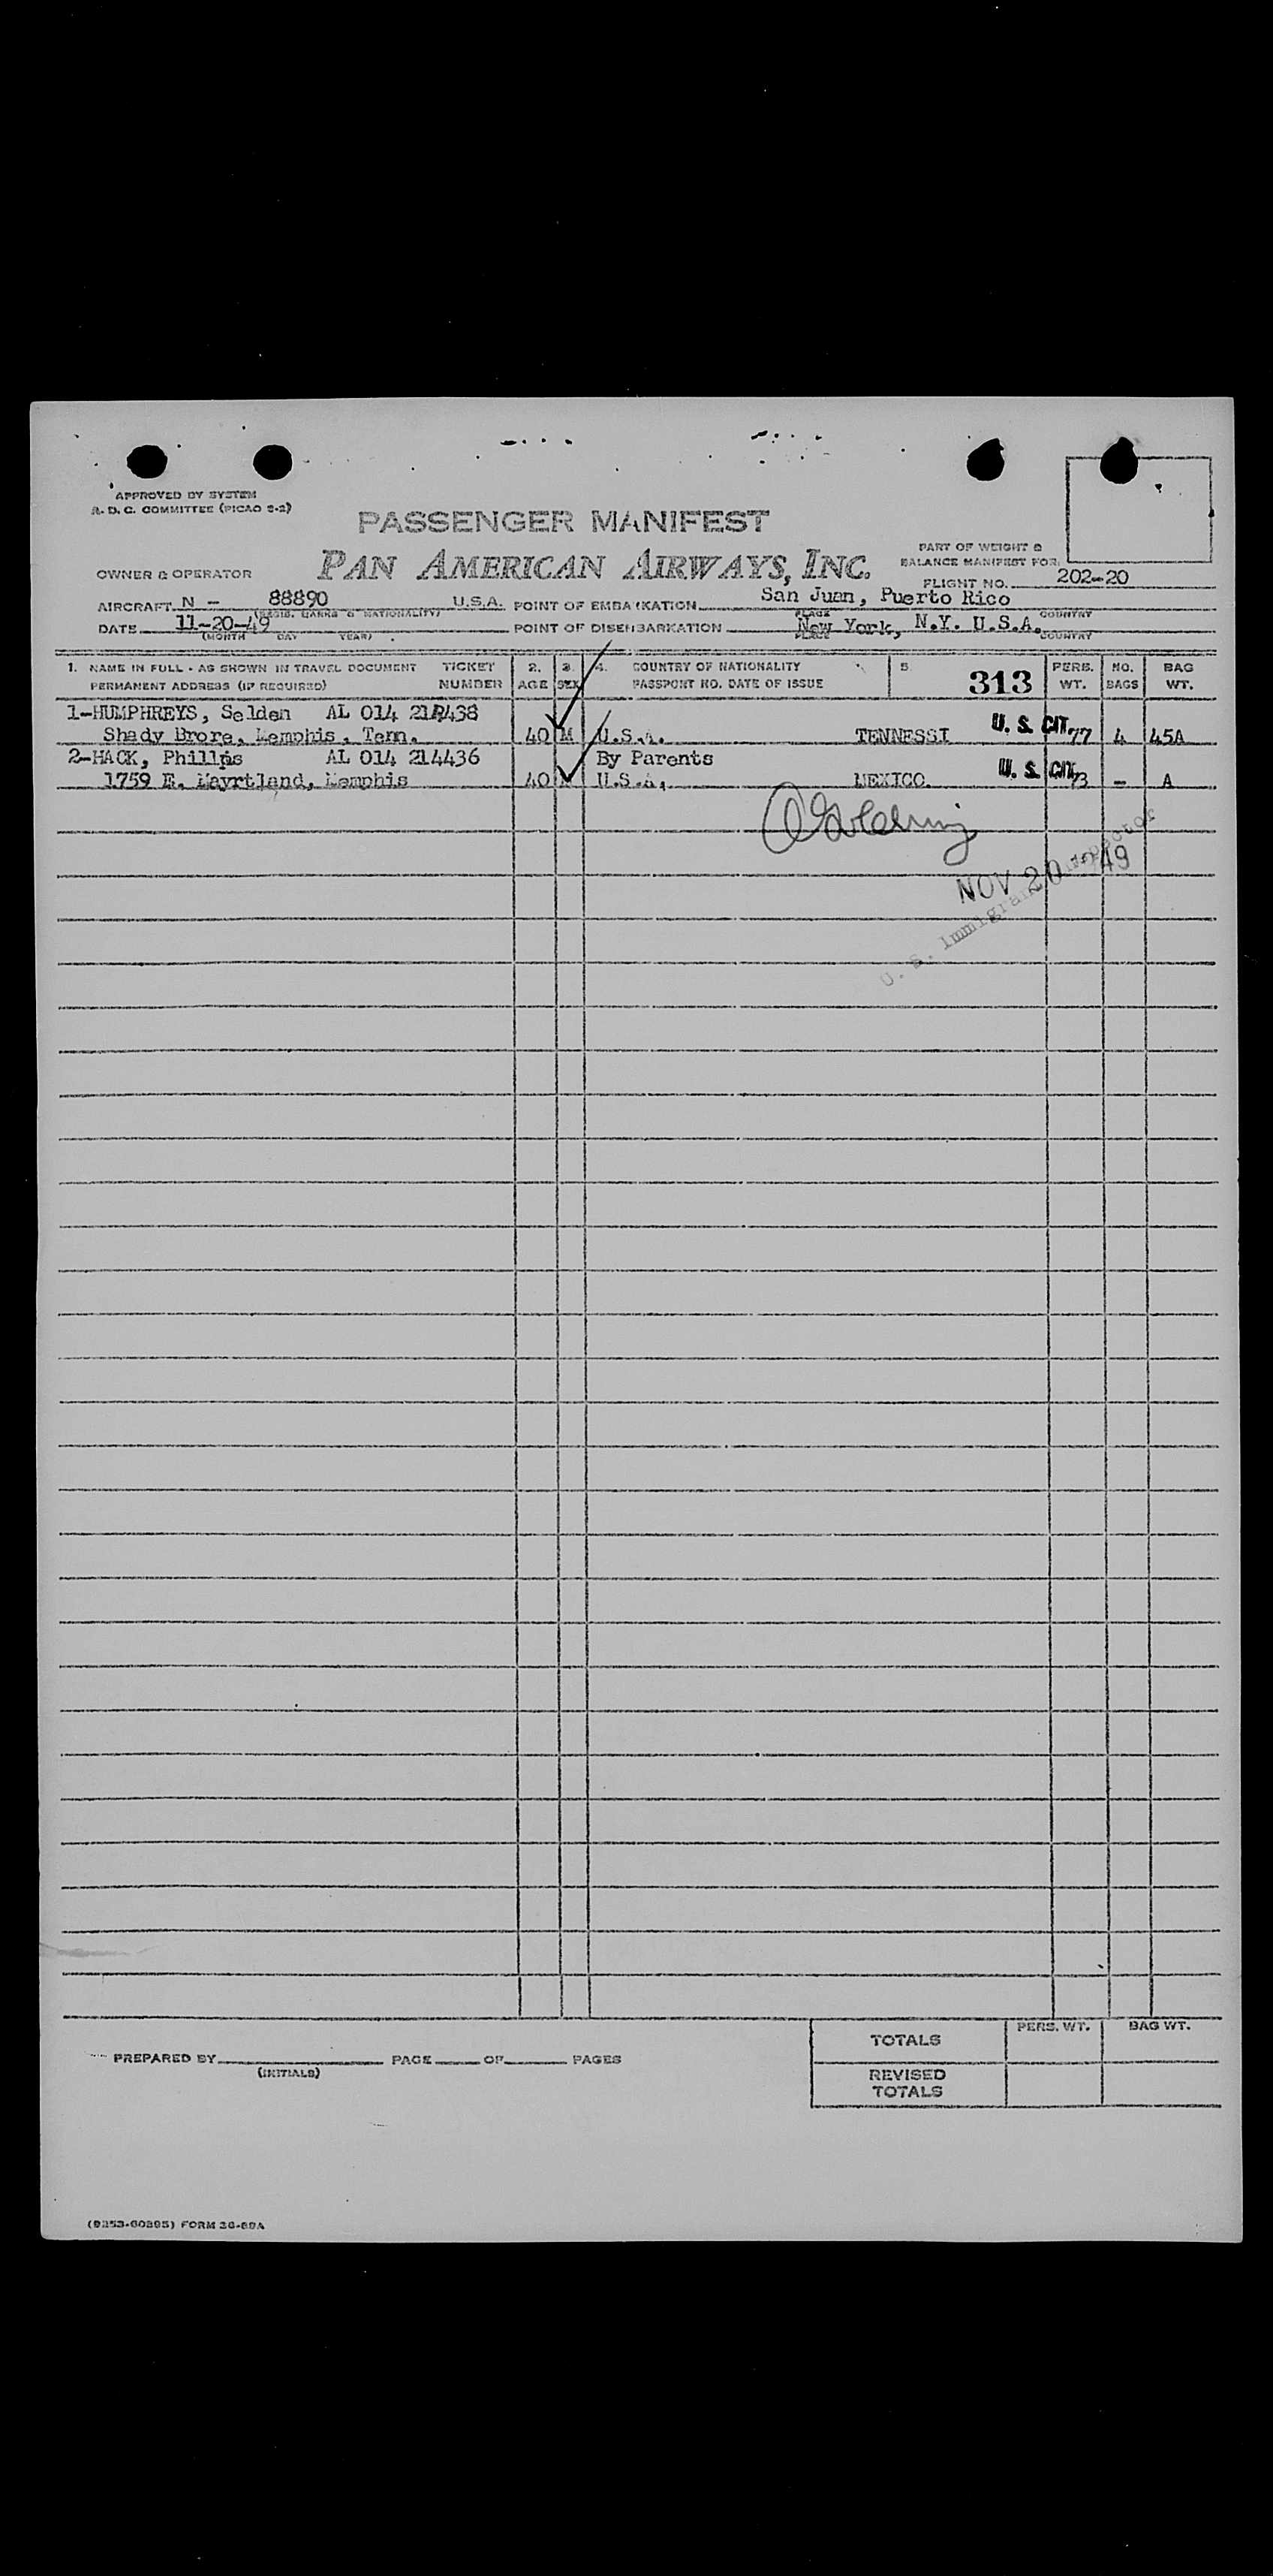 APPROVED BY SYSTEM
R. D. C. COMMITTEE (PICAO S-2)
PASSENGER MANIFEST
PART OF WEIGHT &
BALANCE MANIFEST FOR
OWNER & OPERATOR PAN AMERICAN AIRWAYS, INC. FLIGHT NO. 202-20
AIRCRAFT N - 88890 U.S.A. POINT OF EMBARKATION San Juan, Puerto Rico
(REGIS. MARKS & NATIONALITY) PLACE COUNTRY
DATE 11-20-49 POINT OF DISEMBARKATION New York, N.Y. U.S.A.
(MONTH DAY YEAR) PLACE COUNTRY
1. NAME IN FULL - AS SHOWN IN TRAVEL DOCUMENT TICKET 2. 3. 4. COUNTRY OF NATIONALITY 5. 313 PERS. NO. BAG
PERMANENT ADDRESS (IF REQUIRED) NUMBER AGE SEX PASSPORT NO. DATE OF ISSUE WT. BAGS WT.
1-HUMPHREYS, Selden AL 014 214438
Shady Brore, Memphis, Tenn. 40 M U.S.A. TENNESSI U. S. CIT. 77 4 45A
2-HACK, Phillps AL 014 214436 By Parents
1759 E. Mayrtland, Memphis 40 U.S.A, MEXICO. U. S. CIT. 73 - A
NOV 20 1949
U. S. Immigrant Inspector
TOTALS PERS. WT. BAG WT.
PREPARED BY PAGE OF PAGES
(INITIALS)
REVISED
TOTALS
(9253-60295) FORM 36-89A